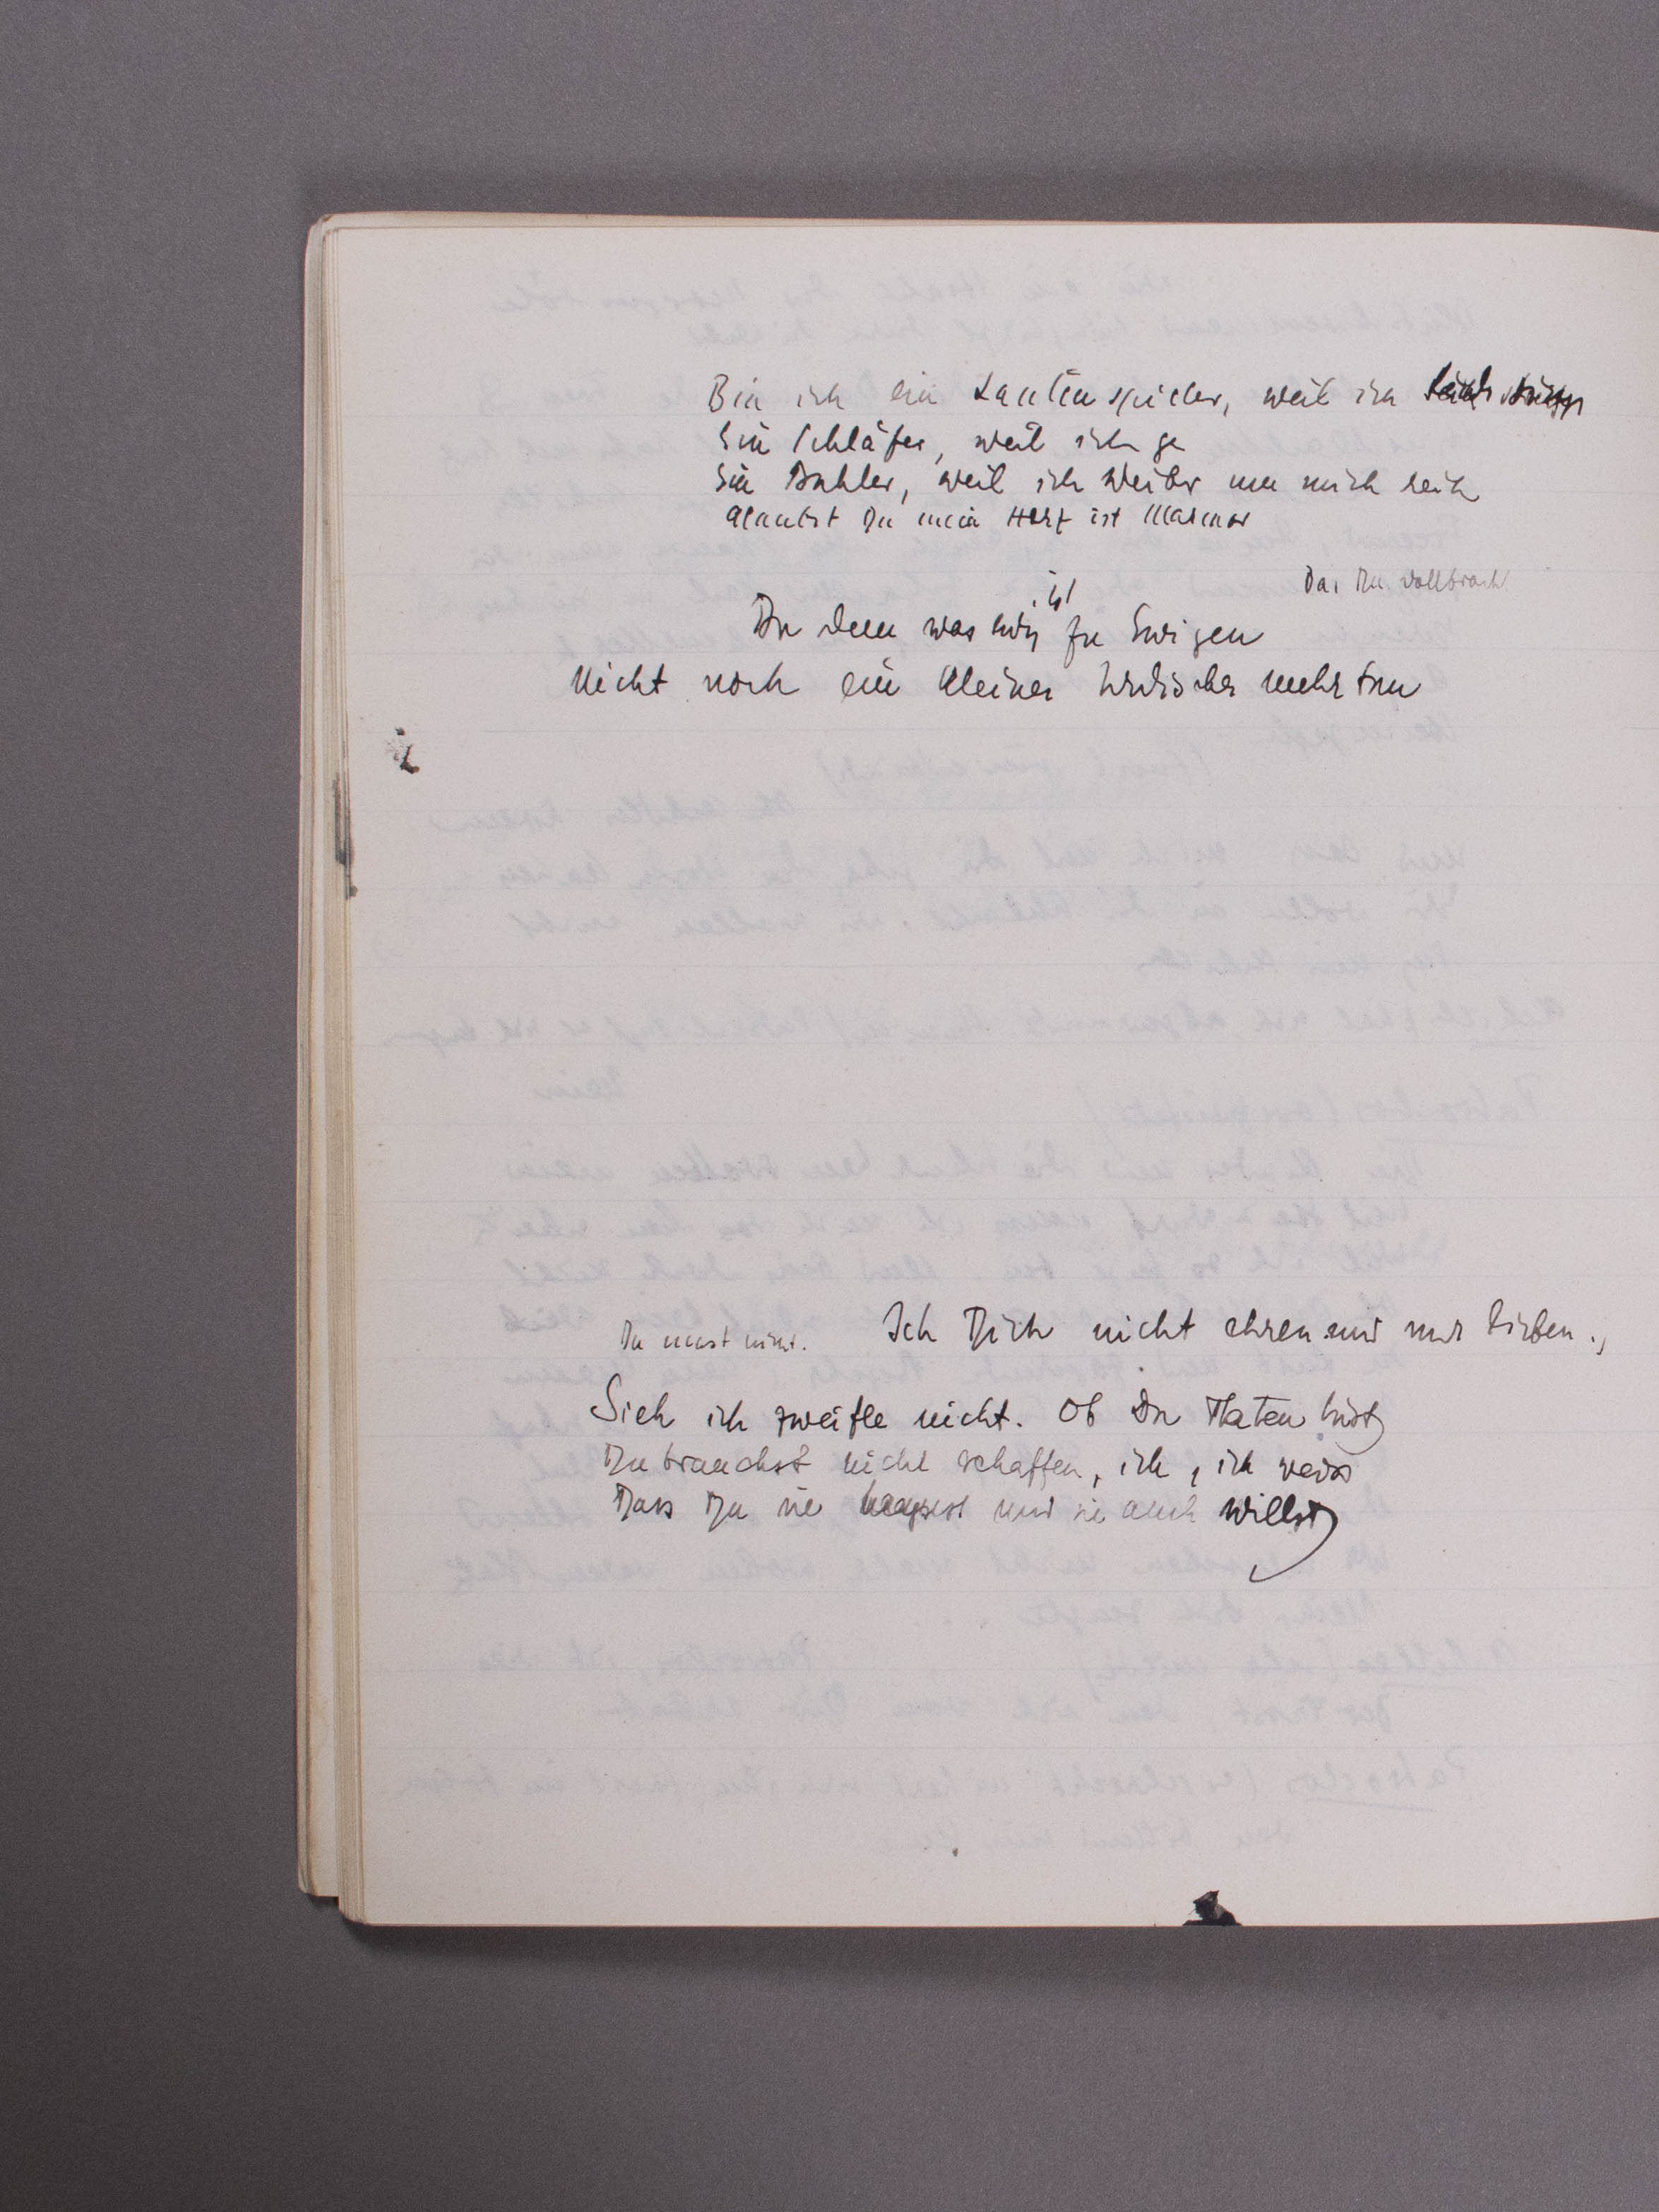 Bin ich ein Lautenspieler, weil ich
Ein Schläfer, weil ich ge
Ein Buhler, weil ich Weiber um mich seh
Glaubst Du mein Herz ist Marmor
Das Du vollbracht
ist
Du dem was ewig zu Ewigen
Nicht noch ein kleines Irdisches mehr tun
Du must nicht. Ich Dich nicht ehren und nur lieben.,
Sieh ich zweifle nicht. Ob Du Thaten tust
Du brauchst nicht schaffen, ich, ich weiss
Dass Du sie und sie auch willst